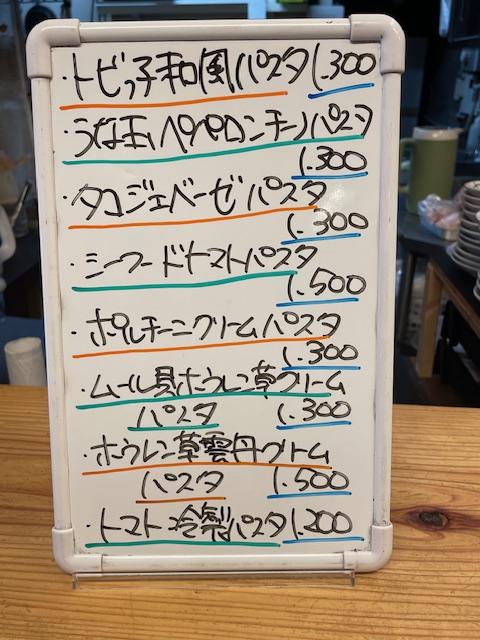 ・トビっ子和風パスタ 1.300
・うな玉ペペロンチーノパスタ
1.300
・タコジェベーゼパスタ
1.300
・シーフードトマトパスタ
1.500
・ポルチーニクリームパスタ
1.300
・ムール貝ホウレン草クリーム
パスタ 1.300
・ホウレン草雲丹クリーム
パスタ 1.500
・トマト冷製パスタ 1.200